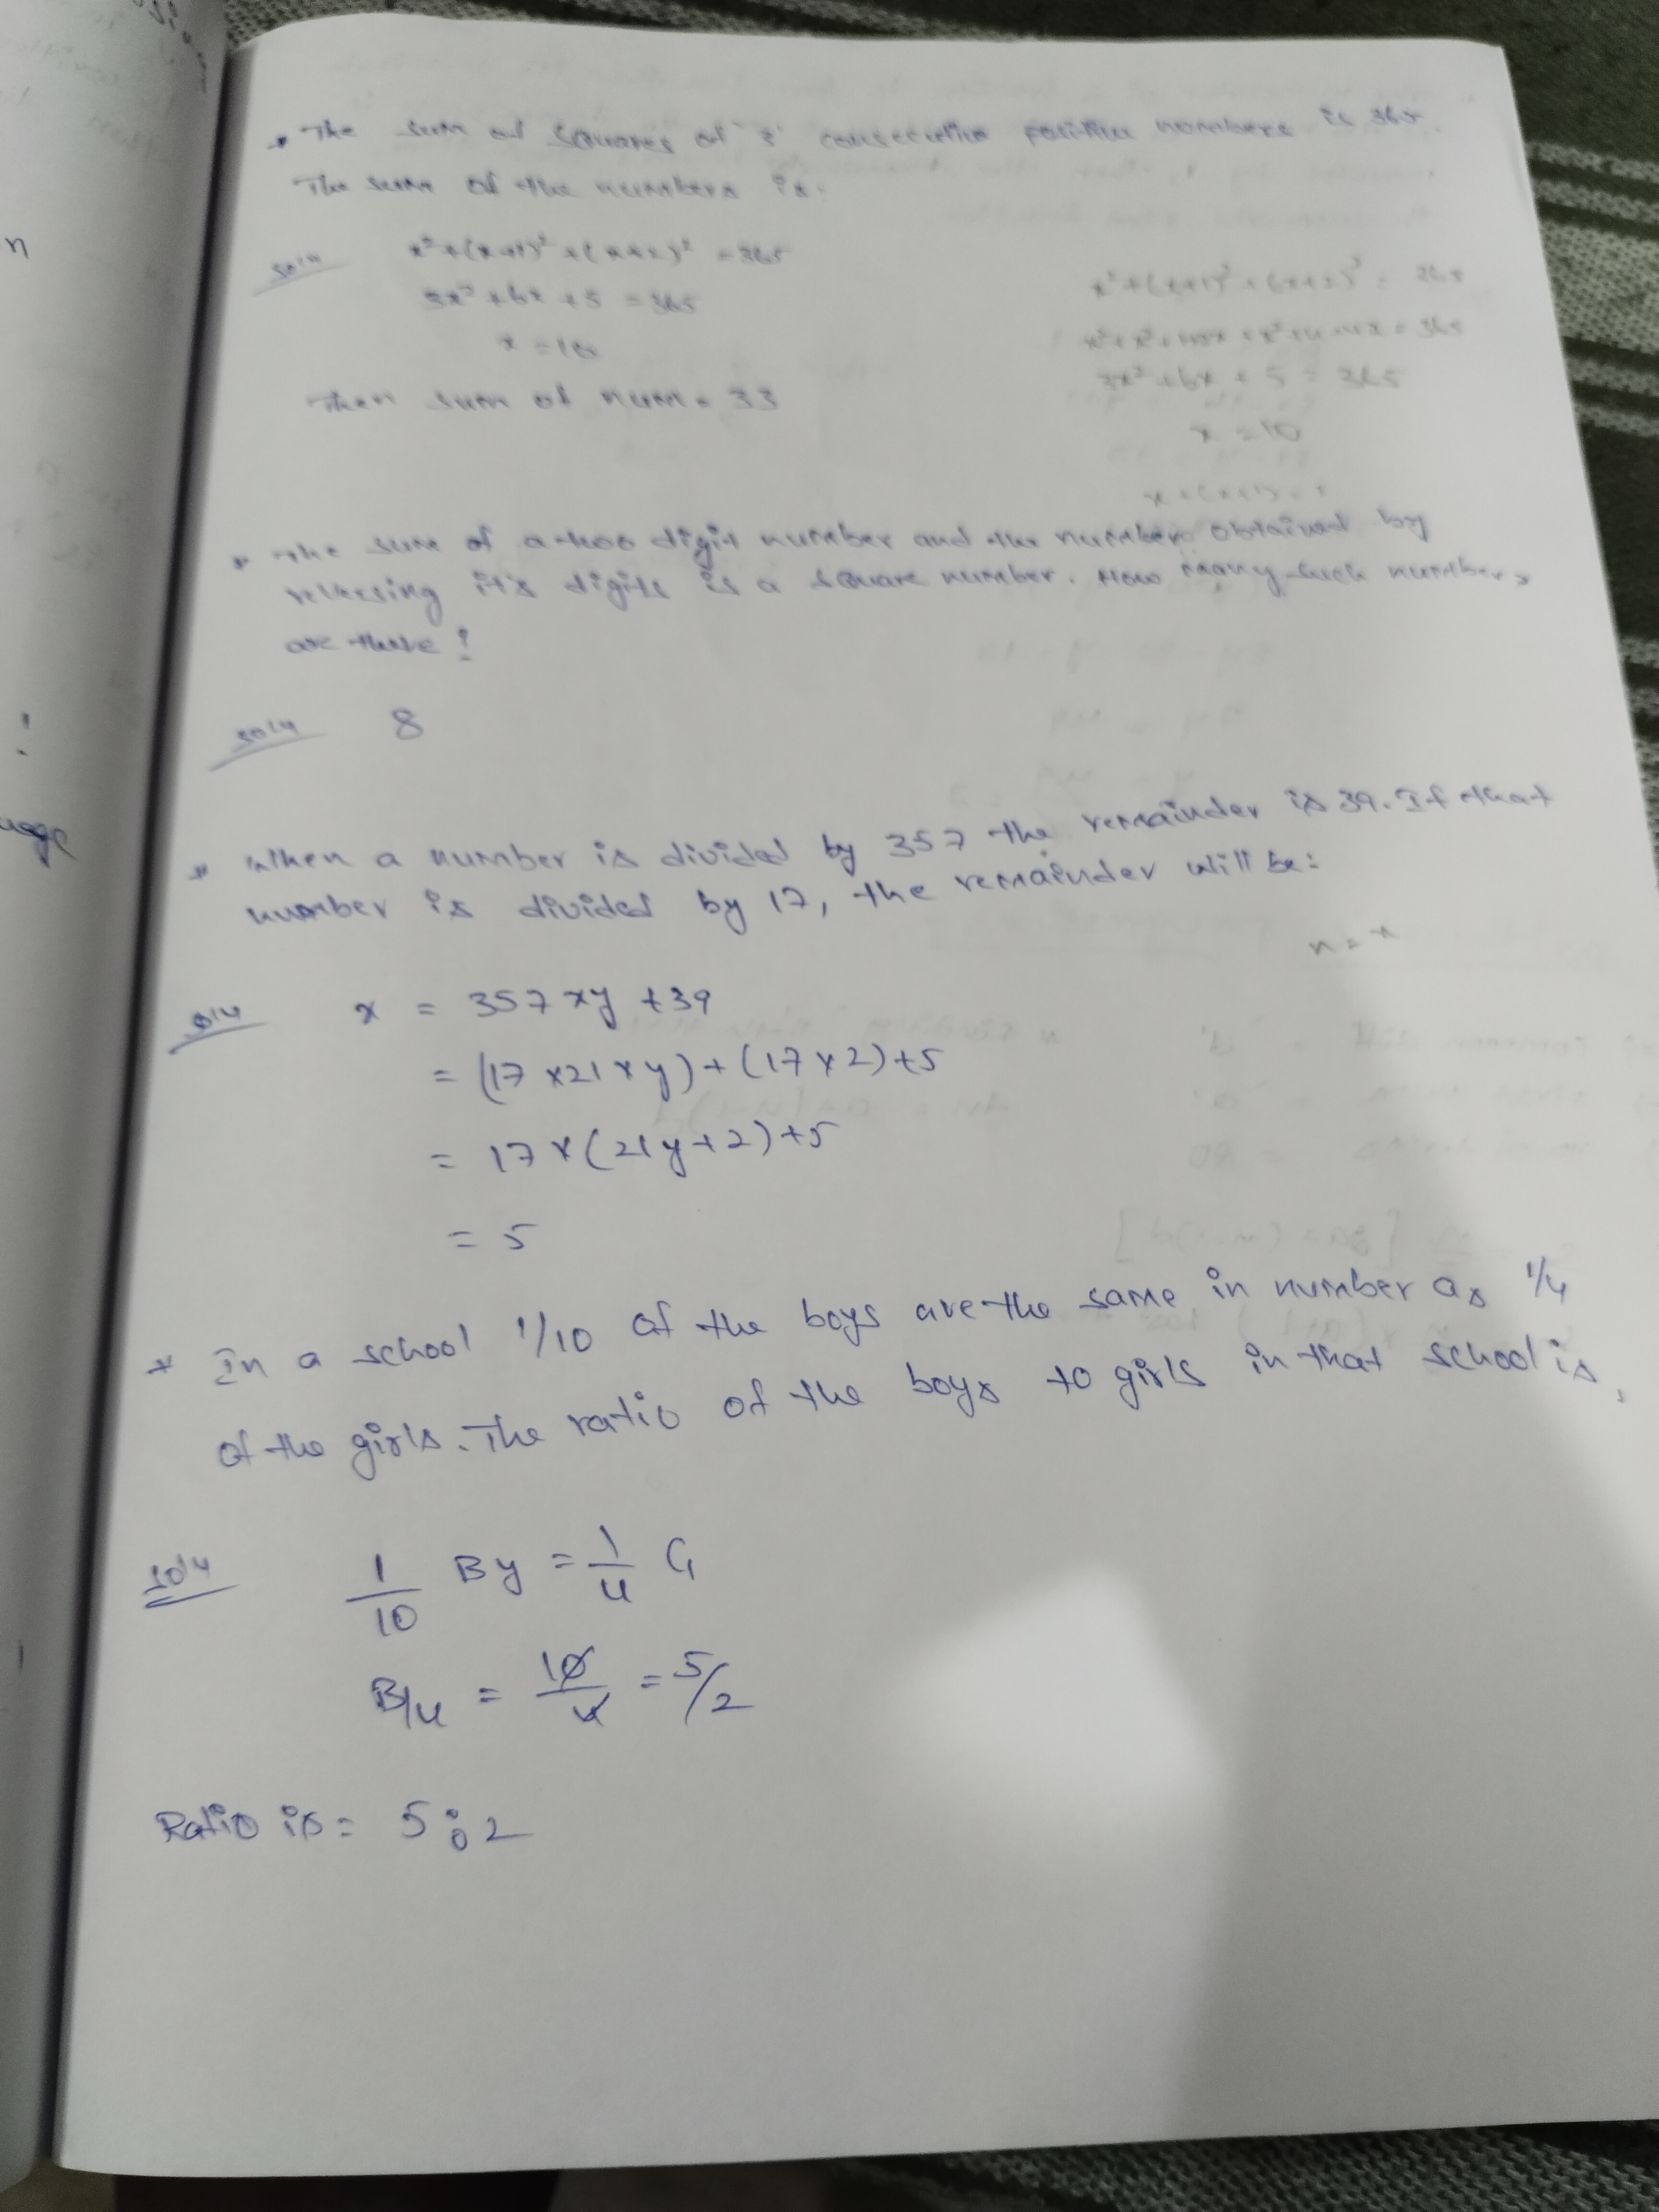 * The sum of squares of '3' consecutive positive numbers is 365.
The sum of the numbers is:
Soln x²+(x+1)²+(x+2)² = 365
3x²+6x+5 = 365
x = 10
Then sum of num = 33
x²+(x+1)²+(x+2)² = 365
3x²+6x+5 = 365
x = 10
x+(x+1)+
* The sum of a two digit number and the number obtained by
reversing it's digits is a square number. How many such numbers
are there?
Soln 8
* When a number is divided by 357 the remainder is 39. If that
number is divided by 17, the remainder will be:
n = x
Soln x = 357 xy + 39
= (17 x 21 x y) + (17 x 2) + 5
= 17 x (21y + 2) + 5
= 5
* In a school 1/10 of the boys are the same in number as 1/4
of the girls. The ratio of the boys to girls in that school is,
Soln 1/10 By = 1/4 G
B/4 = 10/4 = 5/2
Ratio is = 5:2